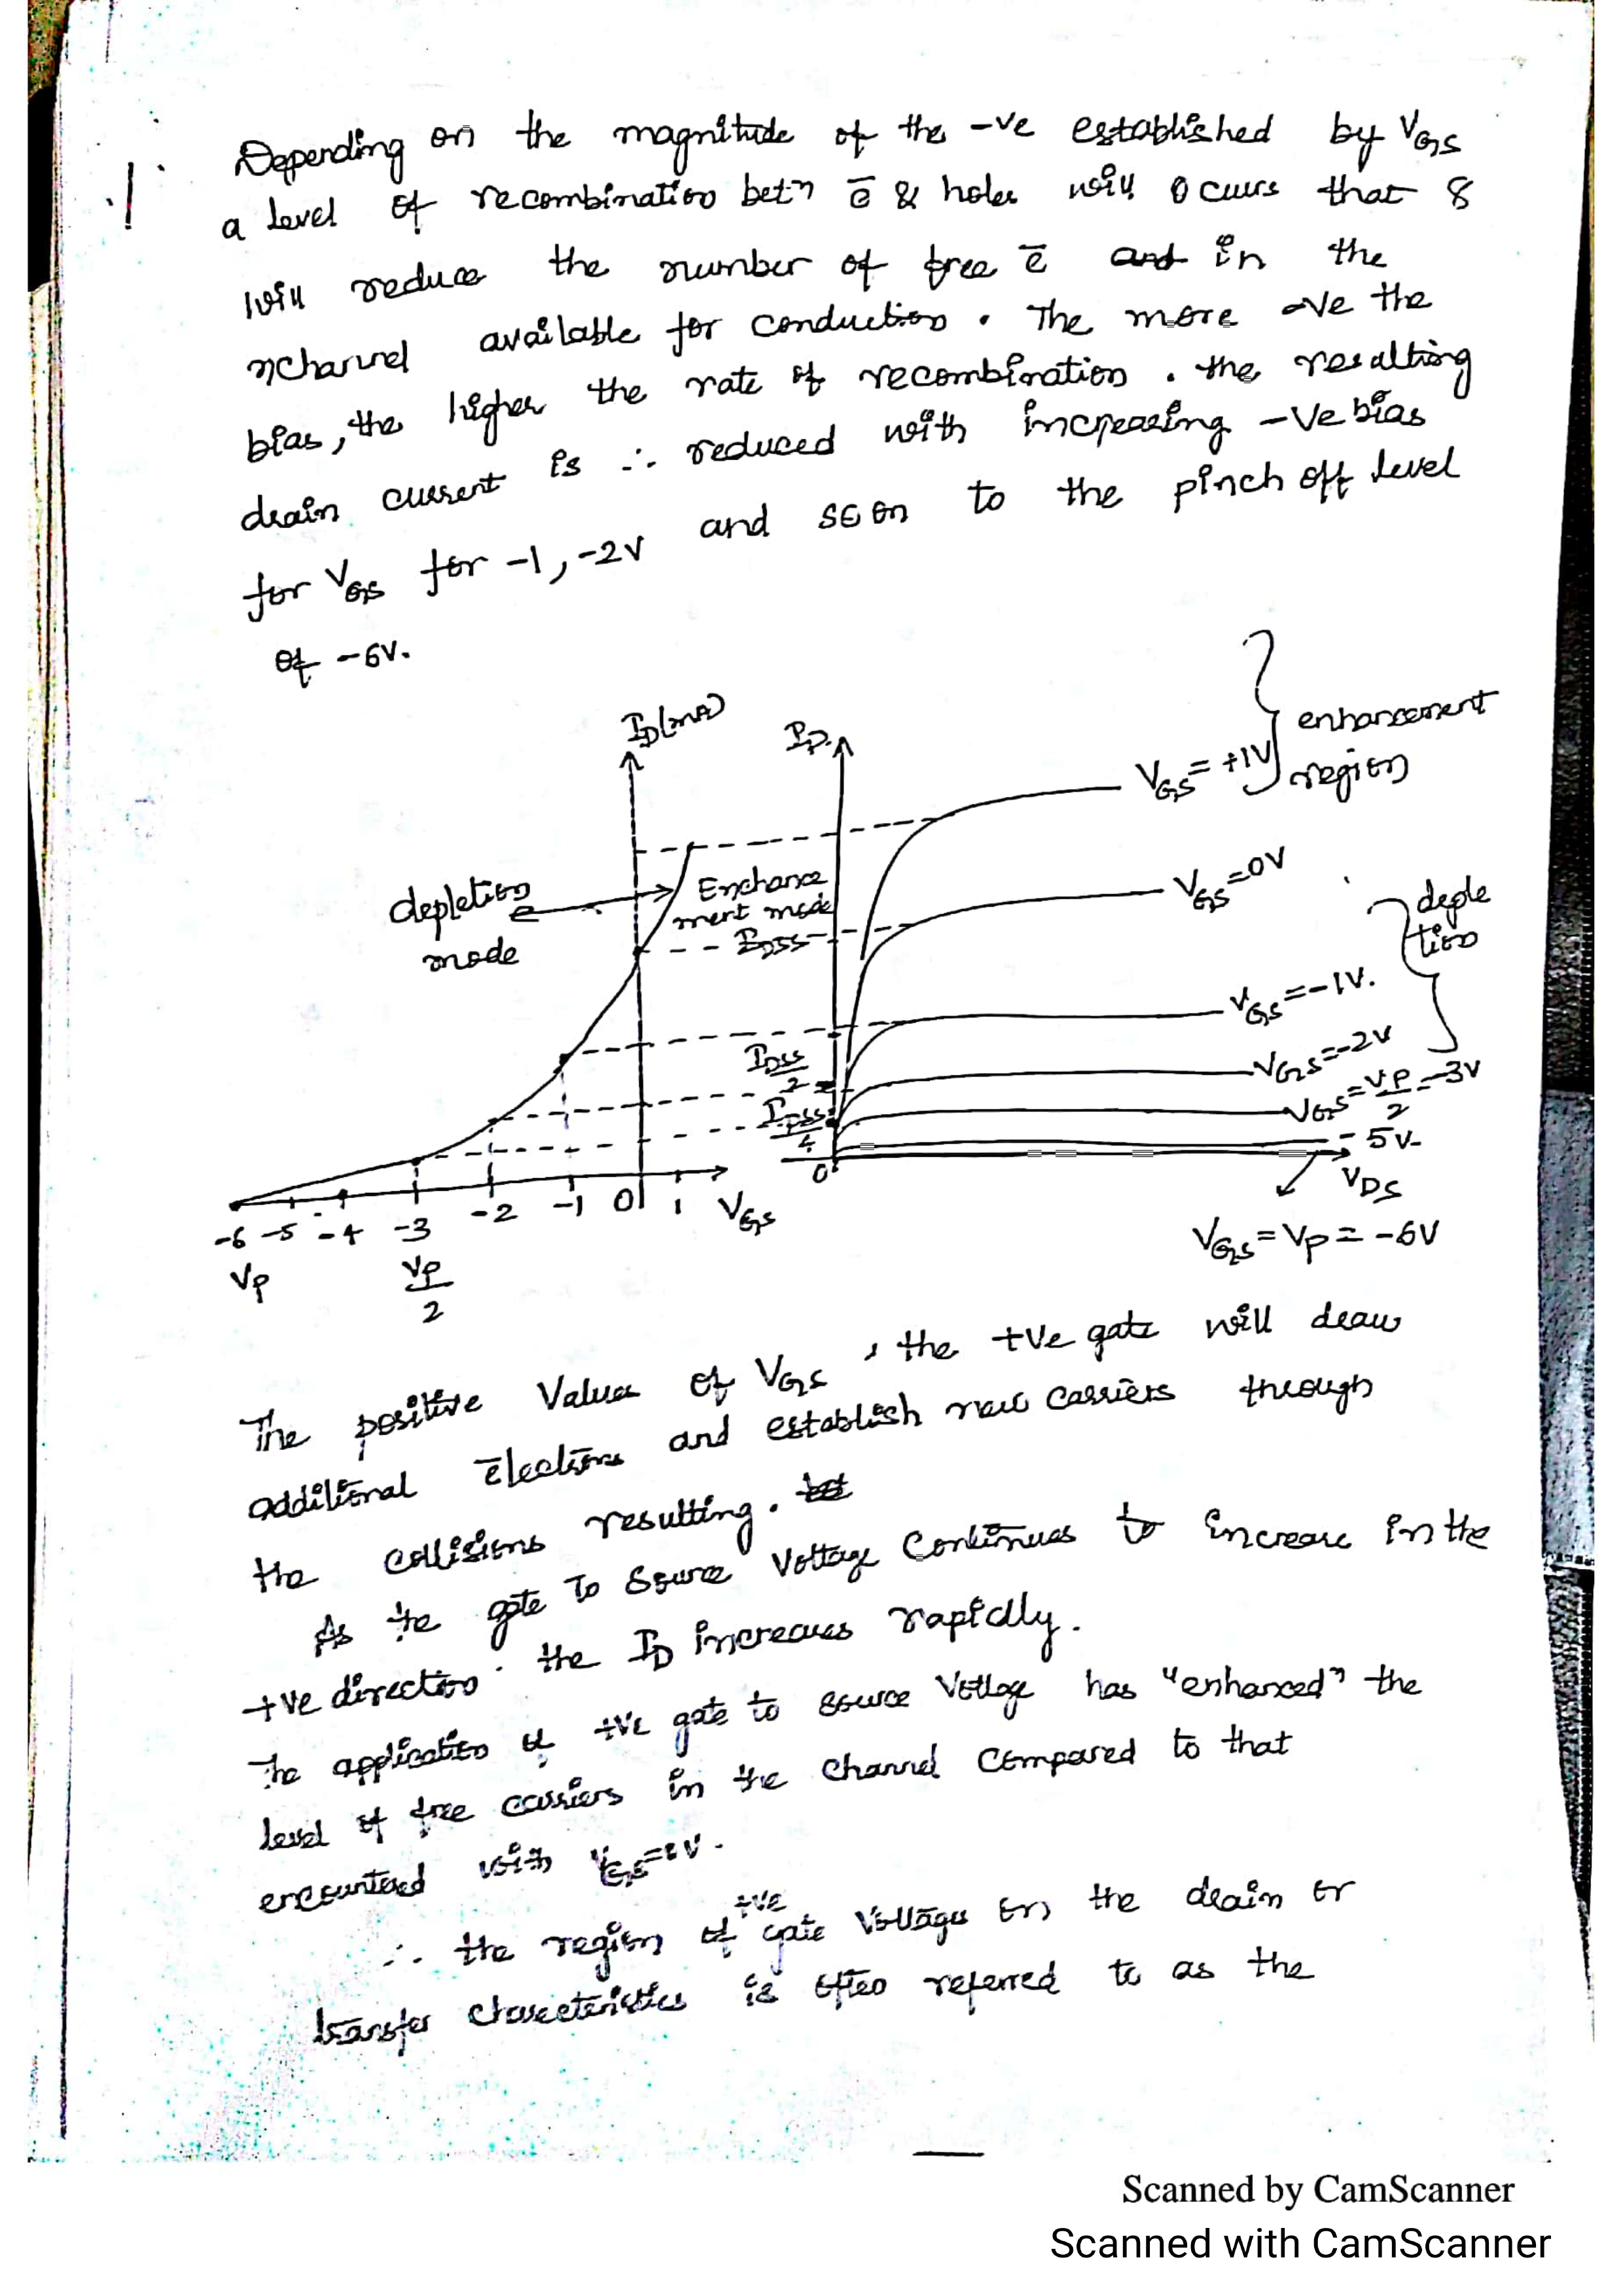 Depending on the magnitude of the -ve established by VGS
a level of recombination betn ē & holes will occurs that 8
will reduce the number of free ē and in the
nchannel available for conduction. The more -ve the
bias, the higher the rate of recombination. the resulting
drain current is ∴ reduced with increasing -Ve bias
for VGS for -1, -2V and so on to the pinch off level
of -6V.
ID(mA)
ID
VGS = +1V
enhancement
region
depletion
mode
Enchance
ment mode
IDSS
VGS=0V
deple
tion
VGS=-1V.
IDSS/2
VGS=-2V
IDSS/4
VGS=VP/2=-3V
-5V
0
VDS
VGS=VP=-6V
-6 -5 -4 -3 -2 -1 0 1 VGS
VP
VP/2
The positive Values of VGS, the +ve gate will draw
additional ēlectrons and establish new carriers through
the collisions resulting.
As the gate To Source Voltage Continues to increase in the
+ve direction. the ID increases rapidly.
The application of +ve gate to source Voltage has "enhanced" the
level of free carriers in the channel compared to that
encountered with VGS=0V.
∴ the region of +ve gate Voltages on the drain or
transfer characteristics is often referred to as the
Scanned by CamScanner
Scanned with CamScanner